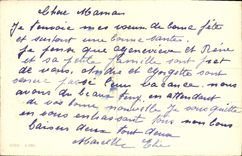 Chère Maman
Je t'envoie mes vœux de bonne fête
et surtout une bonne santé.
Je pense que Geneviève et René
et sa petite famille sont près
de vous, André et Georgette sont
venus passé vacance nous
avons du beau temps en attendant
de vos bonne nouvelle Je vous quitte
en vous embrassant tous nos bons
baisers deux tout deux
Marcelle